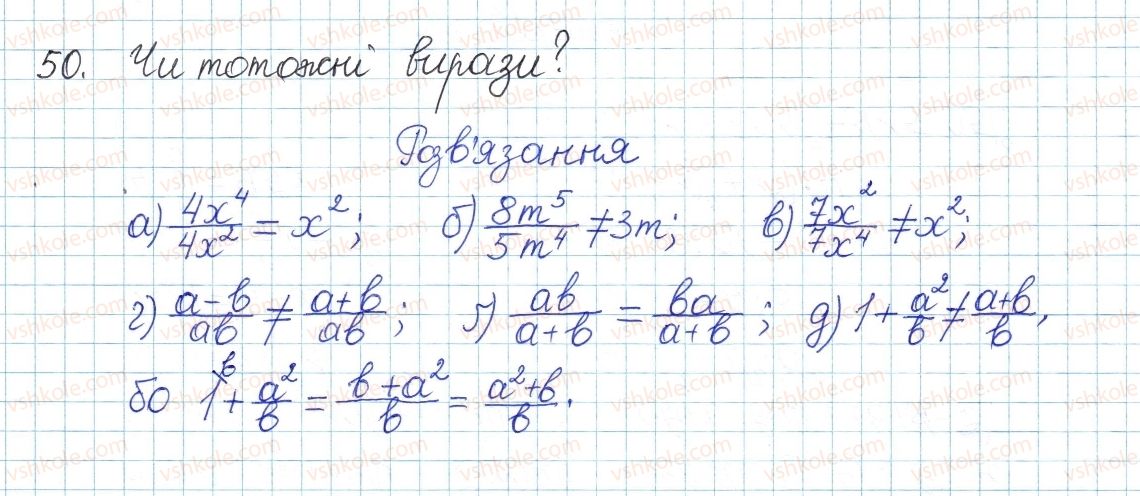 50. Чи тотожні вирази?
Розв'язання
а) 4x⁴/4x² = x²; б) 8m⁵/5m⁴ ≠ 3m; в) 7x²/7x⁴ ≠ x²;
г) a-b/ab ≠ a+b/ab; ґ) ab/a+b = ba/a+b; д) 1 + a²/b ≠ a+b/b,
бо 1ᵇ + a²/b = b+a²/b = a²+b/b.
vshkole.com